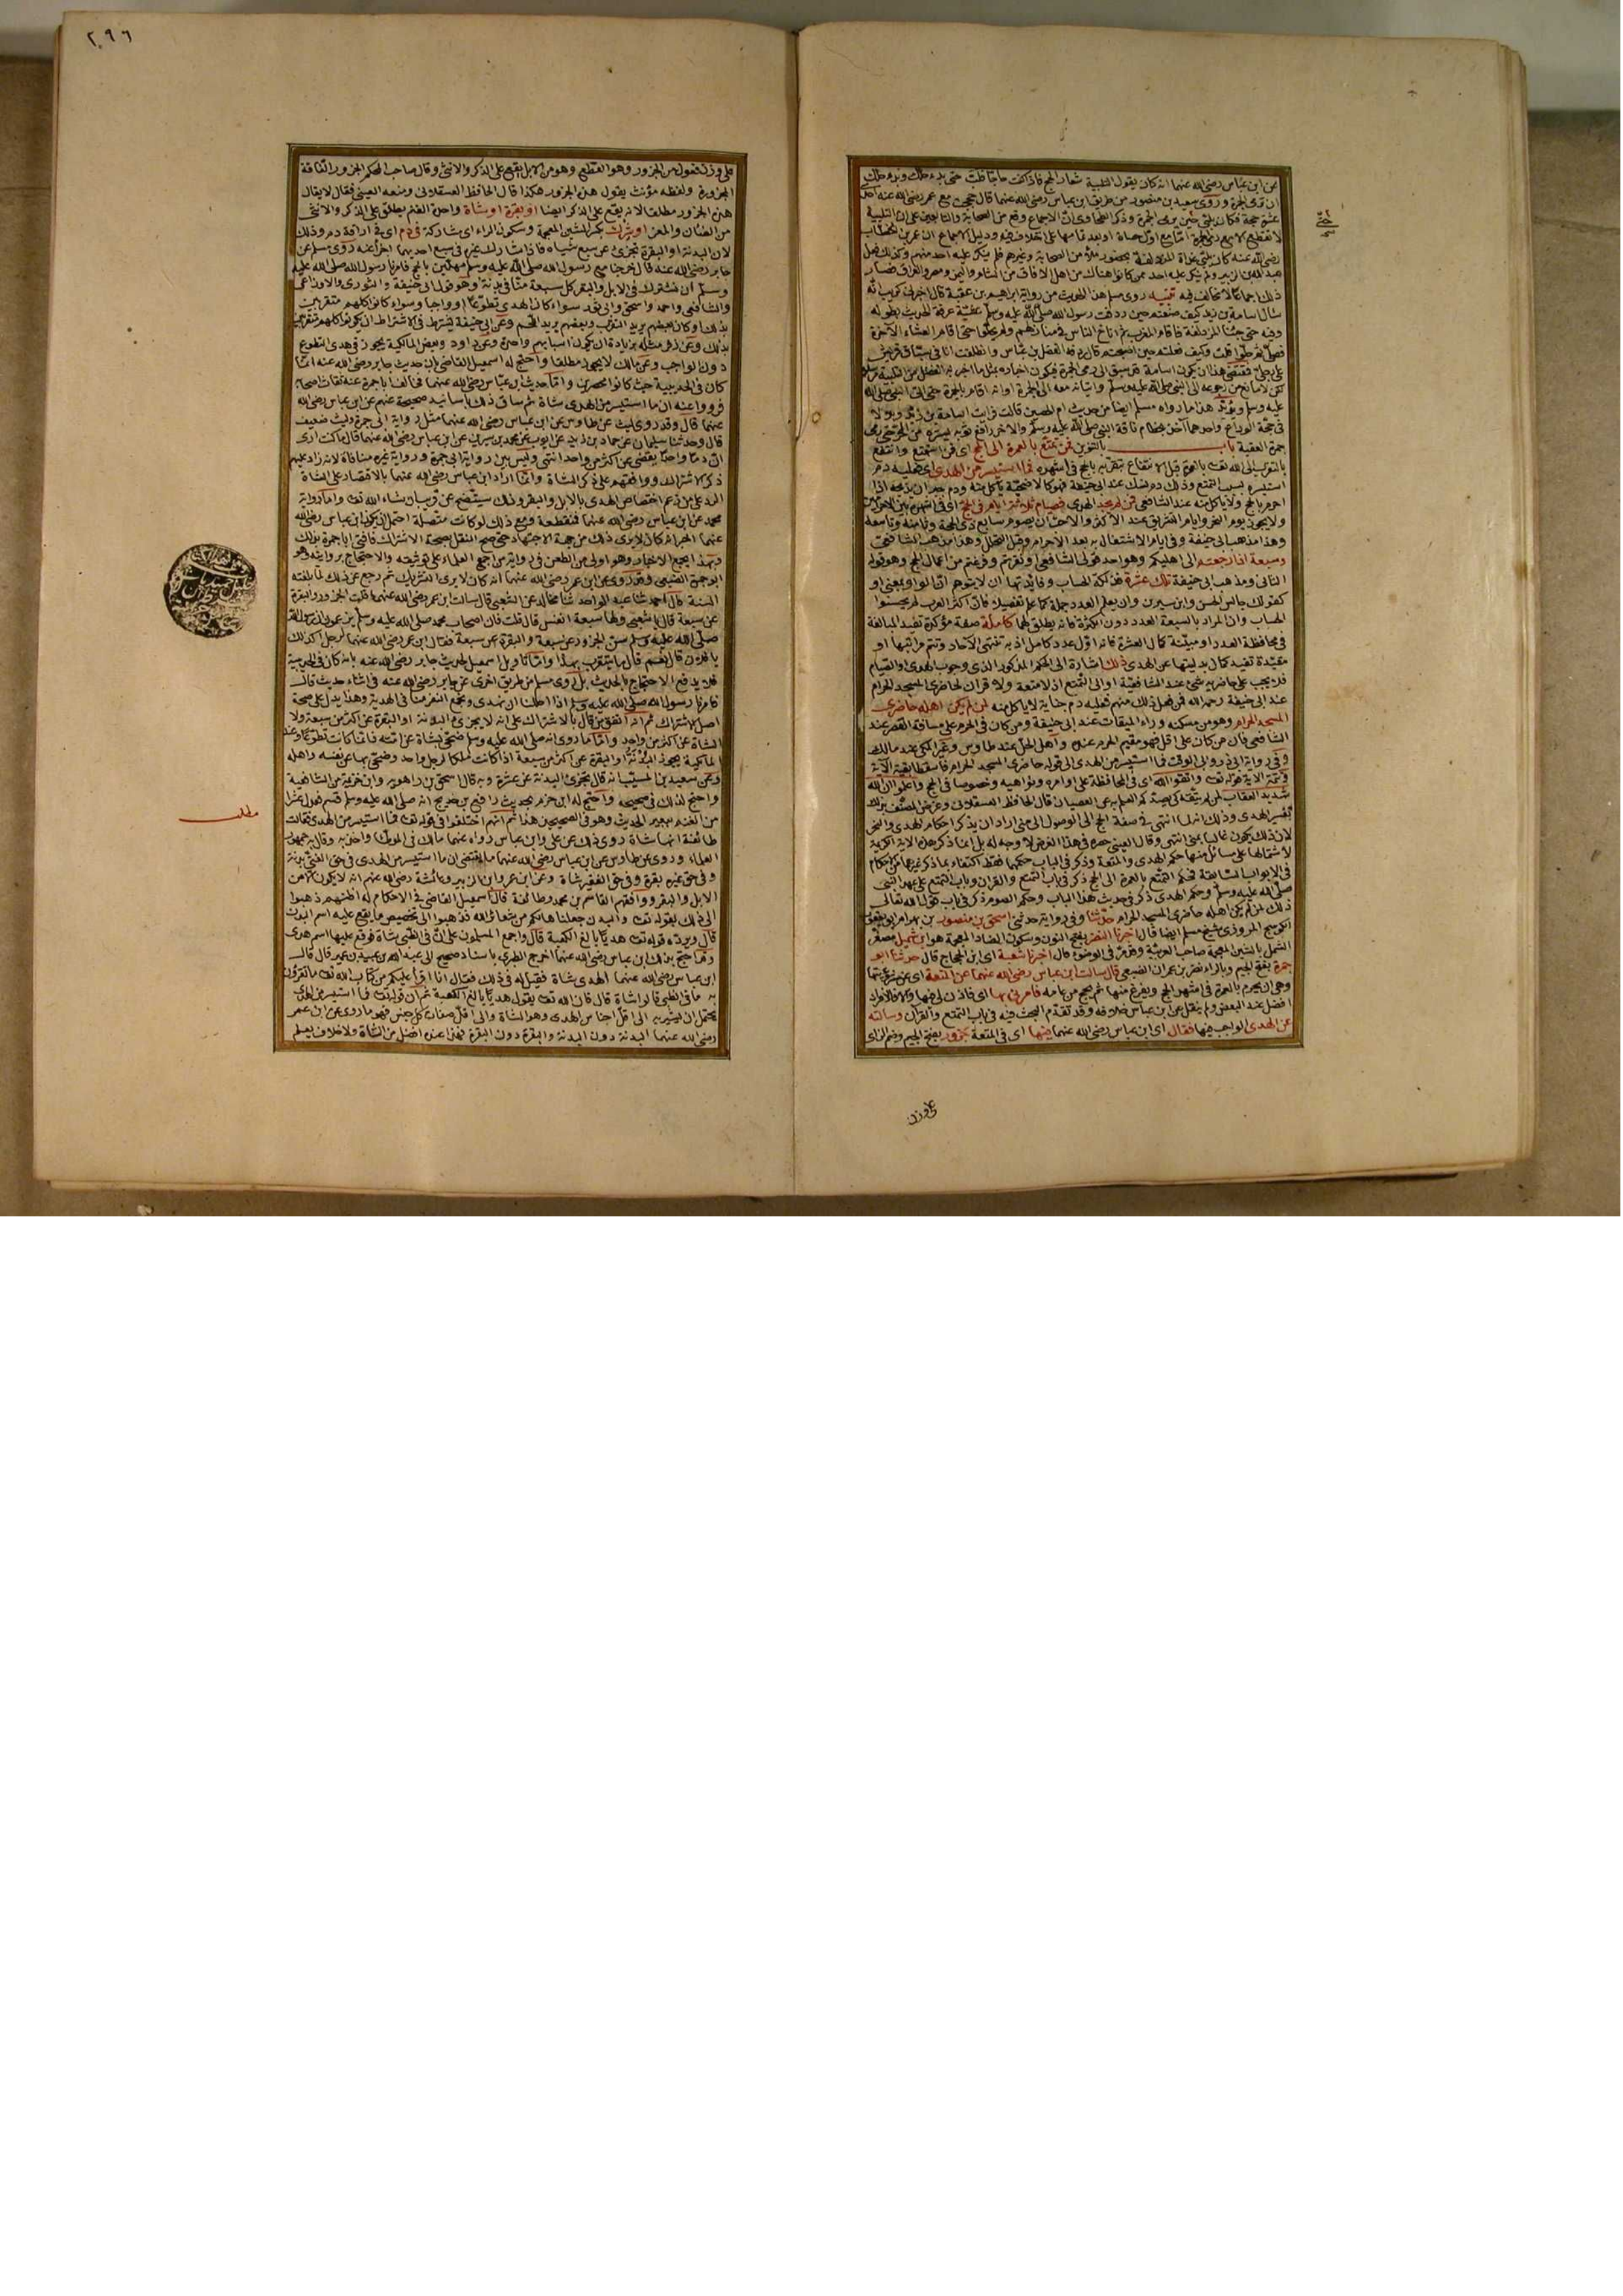 عن ابن عباس رضي الله عنهما انه كان يقول التلبية شعار الحج فاذا كنت حاجا فلب حتى بدء حلك وبدء حلك
ان ترمي الجمرة وروى سعيد بن منصور من طريق ابن عباس رضي الله عنهما قال حججت مع عمر رضي الله عنه احدى
عشرة حجة فكان يلبي حتى يرمي الجمرة وذكر الطحاوي ان الاجماع وقع من الصحابة والتابعين على ان التلبية
لا تنقطع الا مع رمي الجمرة اما مع اول حصاة او بعد تمامها على اختلاف فيه ودليل الاجماع ان عمر بن الخطاب
رضي الله عنه كان يلبي غداة المزدلفة بحضور ملأ من الصحابة وغيرهم فلم ينكر عليه احد منهم وكذلك فعل
عبد الله بن الزبير ولم ينكر عليه احد ممن كانوا هناك من اهل الافاق من الشام واليمن ومصر والعراق فصار
ذلك اجماعا لا يخالف فيه تنبيه روى مسلم هذا الحديث من رواية ابراهيم بن عقبة قال اخبرني كريب انه
سأل اسامة بن زيد كيف صنعتم حين ردفت رسول الله صلى الله عليه وسلم عشية عرفة الحديث بطوله
وفيه حتى جئنا المزدلفة فاقام المغرب ثم اناخ الناس في منازلهم ولم يحلوا حتى اقام العشاء الآخرة
فصلى ثم حلوا قلت وكيف فعلتم حين اصبحتم قال ردفه الفضل بن عباس وانطلقت انا في سباق قريش
على رجلي فمقتضى هذا ان يكون اسامة قد سبق الى رمي الجمرة فيكون اخباره بمثل ما اخبر به الفضل من التلبية مرسلا
لكن لا مانع من رجوعه الى النبي صلى الله عليه وسلم واتيانه معه الى الجمرة او انه اقام بالجمرة حتى اتى النبي صلى الله
عليه وسلم ويؤيد هذا ما رواه مسلم ايضا من حديث ام الحصين قالت فرأيت اسامة بن زيد وبلالا
في حجة الوداع واحدهما آخذ بخطام ناقة النبي صلى الله عليه وسلم والاخر رافع ثوبه يستره من الحر حتى رمى
جمرة العقبة باب بالتنوين فمن تمتع بالعمرة الى الحج اي فمن استمتع وانتفع
بالتقرب الى الله تعالى بالعمرة قبل الانتفاع بتقربه بالحج في اشهره فما استيسر من الهدي اي فعليه دم
استيسره بسبب التمتع وذلك دم نسك عند ابي حنيفة فهو كالاضحية يأكل منه ودم جبران يذبحه اذا
احرم بالحج ولا يأكل منه عند الشافعي فمن لم يجد الهدي فصيام ثلاثة ايام في الحج اي في اشهره بين الاحرامين
ولا يجوز يوم النحر وايام التشريق عند الاكثر والاحب ان يصوم سابع ذي الحجة وثامنه وتاسعه
وهذا مذهب ابي حنيفة وفي ايام الاشتغال به بعد الاحرام وقبل التحلل وهذا مذهب الشافعي
وسبعة اذا رجعتم الى اهليكم وهو احد قولي الشافعي او نفرتم وفرغتم من اعمال الحج وهو قوله
الثاني ومذهب ابي حنيفة تلك عشرة فذلكة الحساب وفائدتها ان لا يتوهم ان الواو بمعنى او
كقولك جالس الحسن وابن سيرين وان يعلم العدد جملة كما علم تفصيلا فان اكثر العرب لم يحسنوا
الحساب وان المراد بالسبعة العدد دون الكثرة فانه يطلق لهما كاملة صفة مؤكدة تفيد المبالغة
في محافظة العدد او مبينة كمال العشرة فانه اول عدد كامل اذ به تنتهي الآحاد وتتم مراتبها او
مقيدة تفيد كمال بدليتها عن الهدي ذلك اشارة الى الحكم المذكور الذي وجوب الهدي او الصيام
فلا يجب على حاضريه شيء عند الشافعية او الى التمتع اذ لا متعة ولا قران لحاضري المسجد الحرام
عند ابي حنيفة رحمه الله فمن فعل ذلك منهم فعليه دم جناية لا يأكل منه لمن لم يكن اهله حاضري
المسجد الحرام وهو من مسكنه وراء الميقات عند ابي حنيفة ومن كان في الحرم على مسافة القصر عند
الشافعي فان من كان على اقل فهو مقيم الحرم عنده واهل الحل عند طاوس وغير المكي عند مالك
وفي رواية ابي ذر وابي الوقت فما استيسر من الهدي الى قوله حاضري المسجد الحرام فاسقطا بقية الآية
وتتمة الآية قوله تعالى واتقوا الله اي في المحافظة على اوامره ونواهيه وخصوصا في الحج واعلموا ان الله
شديد العقاب لمن لم يتقه كي يصدكم العلم به عن العصيان قال الحافظ العسقلاني وغرض المصنف بذلك
تفسير الهدي وذلك انه لما انتهى في صفة الحج الى الوصول الى منى اراد ان يذكر احكام الهدي والنحر
لان ذلك يكون غالبا بمنى انتهى وقال العيني حصره في هذا الغرض لا وجه له بل انما ذكر هذه الاية الكريمة
لاشتمالها على مسائل منها حكم الهدي والمتعة وذكر في الباب حكمها فقط اكتفاء بما ذكر غيرهما من الاحكام
في الابواب السابقة فحكم التمتع بالعمرة الى الحج ذكر في باب التمتع والقران وباب التمتع على عهد النبي
صلى الله عليه وسلم وحكم الهدي ذكر في حديث هذا الباب وحكم الصوم ذكر في باب قول الله تعالى
ذلك لمن لم يكن اهله حاضري المسجد الحرام حدثنا وفي رواية حدثني اسحق بن منصور بن بهرام ابو يعقوب
الكوسج المروزي شيخ مسلم ايضا قال اخبرنا النضر بفتح النون وسكون الضاد المعجمة هو ابن شميل مصغر
الشمل بالشين المعجمة صاحب العربية وقد مر في الوضوء قال اخبرنا شعبة اي ابن الحجاج قال حدثنا ابو
جمرة بفتح الجيم وبالراء نصر بن عمران الضبعي قال سألت ابن عباس رضي الله عنهما عن المتعة اي عن مشروعيتها
وهي ان يحرم بالعمرة في اشهر الحج ويفرغ منها ثم يحج من عامه فامرني بها اي فاذن لي فيها والا فالافراد
افضل عند البعض ولم ينقل عن ابن عباس خلافه وقد تقدم البحث فيه في باب التمتع والقران وسألته
عن الهدي الواجب فيها فقال اي ابن عباس رضي الله عنهما فيها اي في المتعة جزور بفتح الجيم وضم الزاي
على وزن
٢٩٦
على وزن فعول من الجزر وهو القطع وهو من الابل يقع على الذكر والانثى وقال صاحب المحكم الجزور الناقة
المجزورة ولفظه مؤنث يقول هذه الجزور هكذا قال الحافظ العسقلاني ومنعه العيني فقال لا يقال
هذه الجزور مطلقا لانه يقع على الذكر ايضا او بقرة او شاة واحدة الغنم يطلق على الذكر والانثى
من الضأن والمعز او شرك بكسر الشين المعجمة وسكون الراء اي مشاركة في دم اي في اراقة دم وذلك
لان البدنة او البقرة تجزئ عن سبع شياه فاذا شارك غيره في سبع احديهما اجزأ عنه روى مسلم عن
جابر رضي الله عنه قال خرجنا مع رسول الله صلى الله عليه وسلم مهلين بالحج فامرنا رسول الله صلى الله عليه
وسلم ان نشترك في الابل والبقر كل سبعة منا في بدنة وهو قول ابي حنيفة والثوري والاوزاعي
والشافعي واحمد واسحق وابي ثور سواء كان الهدي تطوعا او واجبا وسواء كانوا كلهم متقربين
بذلك او كان بعضهم يريد التقرب وبعضهم يريد اللحم وعن ابي حنيفة يشترط في الاشتراك ان يكونوا كلهم متقربين
بذلك وعن زفر مثله بزيادة ان تكون اسبابهم واحدة وعن داود وبعض المالكية يجوز في هدي التطوع
دون الواجب وعن مالك لا يجوز مطلقا واحتج له اسمعيل القاضي بان حديث جابر رضي الله عنه انما
كان في الحديبية حيث كانوا محصرين واما حديث ابن عباس رضي الله عنهما فخالف ابا جمرة عنه ثقات اصحابه
فرووا عنه ان ما استيسر من الهدي شاة ثم ساق ذلك باسانيد صحيحة عنهم عن ابن عباس رضي الله
عنهما قال وقد روى ليث عن طاوس عن ابن عباس رضي الله عنهما مثل رواية ابي جمرة وليث ضعيف
قال وحدثنا سليمان عن حماد بن زيد عن ايوب عن محمد بن سيرين عن ابن عباس رضي الله عنهما قال ما كنت ارى
ان دما واحدا يقضي عن اكثر من واحد انتهى وليس بين رواية ابي جمرة ورواية غيره منافاة لانه زاد عليهم
ذكر الاشتراك ووافقهم على ذكر الشاة وانما اراد ابن عباس رضي الله عنهما بالاقتصار على الشاة
الرد على من زعم اختصاص الهدي بالابل والبقر وذلك سيتضح عن قريب ان شاء الله تعالى واما رواية
محمد عن ابن عباس رضي الله عنهما فمنقطعة ومع ذلك لو كانت متصلة احتمل ان يكون ابن عباس رضي الله
عنهما اخبر انه كان لا يرى ذلك من جهة الاجتهاد حتى صح النقل بصحة الاشتراك فافتى ابا جمرة بذلك
وبهذا يجمع الاخبار وهو اولى من الطعن في رواية من اجمع العلماء على توثيقه والاحتجاج بروايته وهو
ابو جمرة الضبعي وقد روى عن ابن عمر رضي الله عنهما انه كان لا يرى التشريك ثم رجع عن ذلك لما بلغته
السنة قال احمد ثنا عبد الواحد ثنا مجالد عن الشعبي قال سألت ابن عمر رضي الله عنهما قلت الجزور والبقرة
عن سبعة قال يا شعبي ولها سبعة انفس قال قلت فان اصحاب محمد صلى الله عليه وسلم يزعمون ان رسول الله
صلى الله عليه وسلم سن الجزور عن سبعة والبقرة عن سبعة فقال ابن عمر رضي الله عنهما لرجل اكذلك
يا فلان قال نعم قال ما شعرت بهذا واما تأويل اسمعيل لحديث جابر رضي الله عنه بانه كان في الحديبية
فلا يدفع الاحتجاج بالحديث بل روى مسلم من طريق اخرى عن جابر رضي الله عنه في اثناء حديث قال
فامرنا رسول الله صلى الله عليه وسلم اذا احللنا ان نهدي ويجمع النفر منا في الهدية وهذا يدل على صحة
اصل الاشتراك ثم انه اتفق من قال بالاشتراك على انه لا يجزئ البدنة او البقرة عن اكثر من سبعة ولا
الشاة عن اكثر من واحد واما ما روي انه صلى الله عليه وسلم ضحى بشاة عن امته فانما كانت تطوعا وعند
المالكية يجوز البدنة او البقرة عن اكثر من سبعة اذا كانت ملكا لرجل واحد وضحى بها عن نفسه واهله
وعن سعيد بن المسيب انه قال يجزئ البدنة عن عشرة وبه قال اسحق بن راهويه وابن خزيمة من الشافعية
واحتج لذلك في صحيحه واحتج له ابن حزم بحديث رافع بن خديج انه صلى الله عليه وسلم قسم فعدل عشرا
من الغنم ببعير الحديث وهو في الصحيحين هذا ثم انهم اختلفوا في قوله تعالى فما استيسر من الهدي فقالت
طائفة انها شاة روى ذلك عن علي وابن عباس رواه عنهما مالك في الموطأ واخذ به وقال به جمهور
العلماء وروى عن طاوس عن ابن عباس رضي الله عنهما ما يقتضي ان ما استيسر من الهدي في حق الغني بدنة
وفي حق غيره بقرة وفي حق الفقير شاة وعن ابن عمر وابن الزبير وعائشة رضي الله عنهم انه لا يكون الا من
الابل والبقر ووافقهم القاسم بن محمد وطائفة قال اسمعيل القاضي في الاحكام له اظنهم ذهبوا
الى ذلك لقوله تعالى والبدن جعلناها لكم من شعائر الله فذهبوا الى تخصيص ما يقع عليه اسم البدن
قال ويرده قوله تعالى هديا بالغ الكعبة قال واجمع المسلمون على ان في الظبي شاة فوقع عليها اسم هدي
وقد احتج بذلك ابن عباس رضي الله عنهما اخرج الطبري باسناد صحيح الى عبد الله بن عبيد بن عمير قال قال
ابن عباس رضي الله عنهما الهدي شاة فقيل له في ذلك فقال انا اقرأ عليكم من كتاب الله تعالى ما تقوون
به ما في الظبي قالوا شاة قال فان الله تعالى يقول هديا بالغ الكعبة ثم ان قوله تعالى فما استيسر من الهدي
يحتمل ان يشير به الى اقل اجناس الهدي وهو الشاة والى اقل صفات كل جنس فهو ما روى عن ابن عمر
رضي الله عنهما البدنة دون البدنة والبقرة دون البقرة فهذا عنده افضل من الشاة ولا خلاف يعلم
مطلب